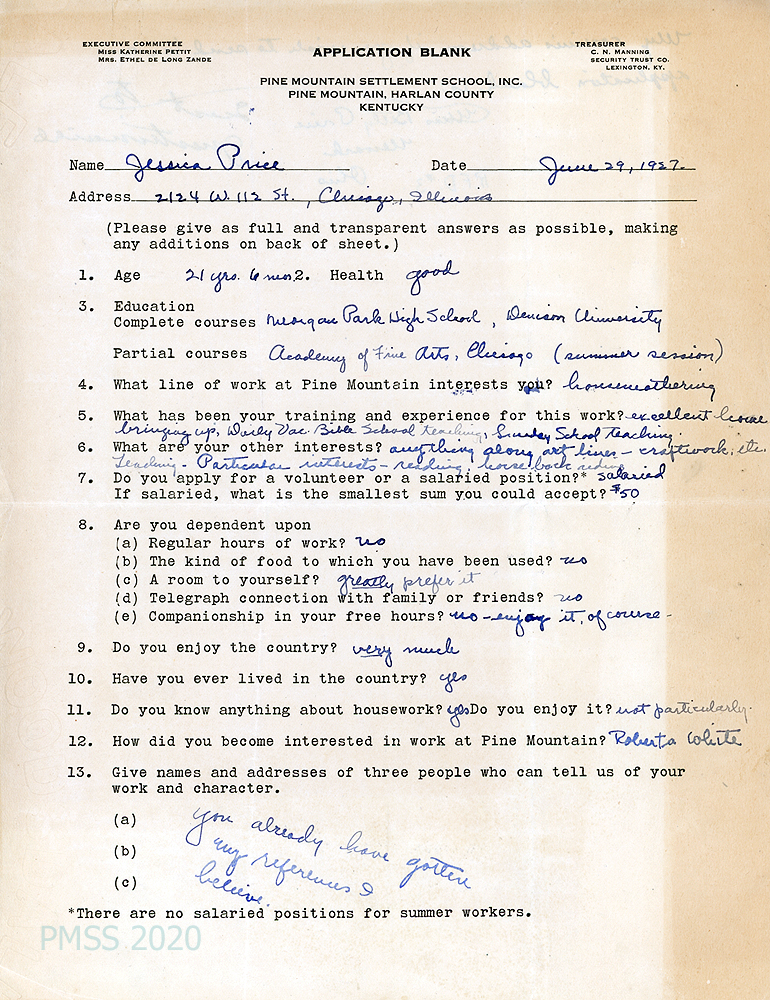 EXECUTIVE COMMITTEE
MISS KATHERINE PETTIT
MRS. ETHEL DE LONG ZANDE
APPLICATION BLANK
TREASURER
C. N. MANNING
SECURITY TRUST CO.
LEXINGTON, KY.
PINE MOUNTAIN SETTLEMENT SCHOOL, INC.
PINE MOUNTAIN, HARLAN COUNTY
KENTUCKY
Name Jessica Price Date June 29, 1927.
Address 2124 W. 112 St., Chicago, Illinois
(Please give as full and transparent answers as possible, making
any additions on back of sheet.)
1. Age 21 yrs. 6 mos. 2. Health good
3. Education
Complete courses Morgan Park High School, Denison University
Partial courses Academy of Fine Arts, Chicago (summer session)
4. What line of work at Pine Mountain interests you? housemothering
5. What has been your training and experience for this work? excellent home
bringing up, Daily Vac. Bible School teaching, Sunday School teaching.
6. What are your other interests? anything along art lines - craftwork, etc.
Teaching - Particular interests - reading, horseback riding
7. Do you apply for a volunteer or a salaried position?* salaried
If salaried, what is the smallest sum you could accept? $50
8. Are you dependent upon
(a) Regular hours of work? no
(b) The kind of food to which you have been used? no
(c) A room to yourself? greatly prefer it
(d) Telegraph connection with family or friends? no
(e) Companionship in your free hours? no - enjoy it, of course -
9. Do you enjoy the country? very much
10. Have you ever lived in the country? yes
11. Do you know anything about housework? yes Do you enjoy it? not particularly.
12. How did you become interested in work at Pine Mountain? Roberta White
13. Give names and addresses of three people who can tell us of your
work and character.
(a) You already have gotten
(b) my references I
(c) believe.
*There are no salaried positions for summer workers.
PMSS 2020